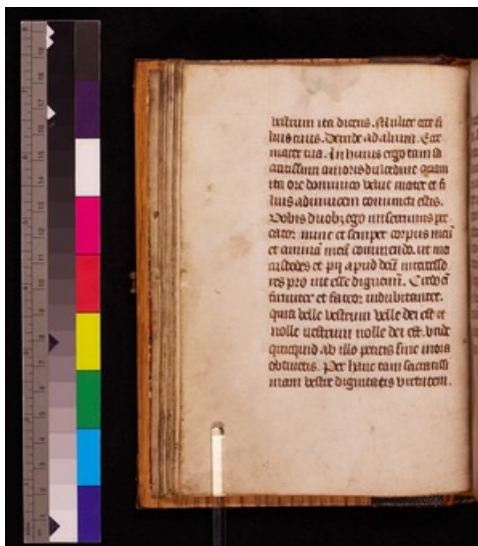 vestrum ita dicens. Mulier ecce fi
lius tuus. Deinde ad alium. Ecce
mater tua. In huius ergo tam sa
cratissimi amoris dulcedine quam
ita ore dominico velut mater et fi
lius adinuicem coniuncti estis.
Vobis duobꝫ ego miserrimus pec
cator nunc et semper corpus meū
et animā meā commendo. ut
et pij apud deū intercesso
res pro me esse dignemī. Credo eī
firmiter et fateor indubitanter.
quia velle vestrum velle dei est et
nolle vestrum nolle dei est. vnde
quicquid ab illo petitis sine mora
obtinetis. Per hanc tam sacratissi
mam vestre dignitatis virtutem.